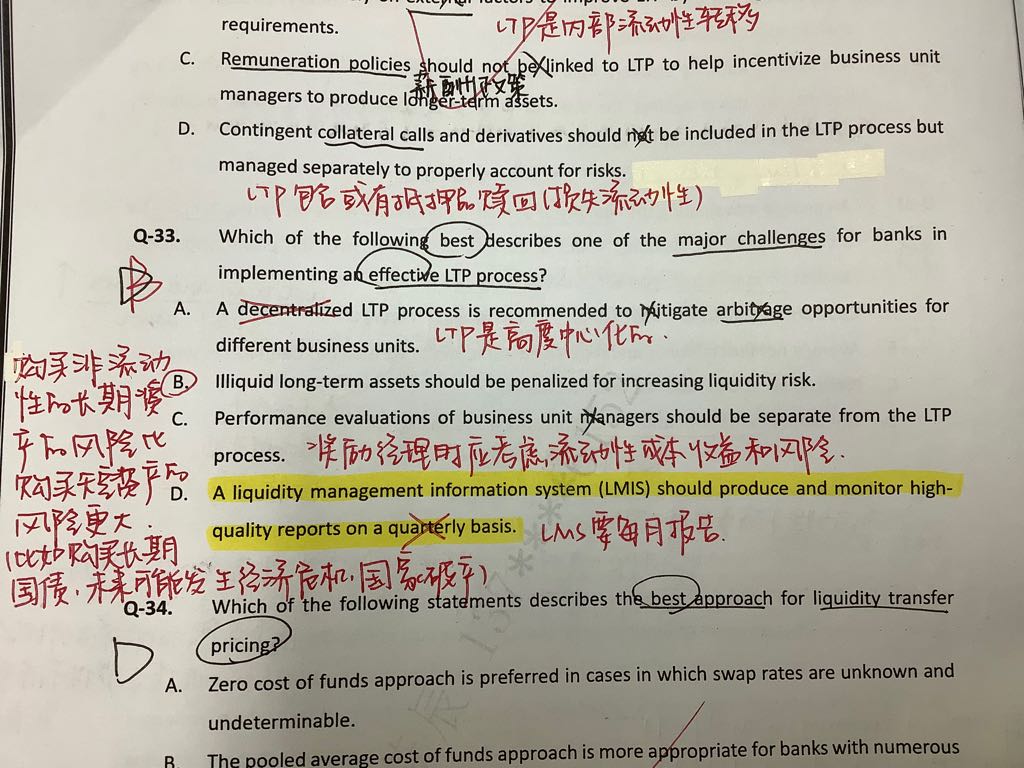 requirements.
LTP是内部流动性转移
C. Remuneration policies should not be linked to LTP to help incentivize business unit
薪酬政策
managers to produce longer-term assets.
D. Contingent collateral calls and derivatives should not be included in the LTP process but
managed separately to properly account for risks.
LTP包含或有抵押品赎回(损失流动性)
Q-33. Which of the following best describes one of the major challenges for banks in
implementing an effective LTP process?
B
A. A decentralized LTP process is recommended to mitigate arbitrage opportunities for
different business units.
LTP是高度中心化的.
B. Illiquid long-term assets should be penalized for increasing liquidity risk.
C. Performance evaluations of business unit managers should be separate from the LTP
process.
奖励经理时应考虑流动性成本收益和风险.
D. A liquidity management information system (LMIS) should produce and monitor high-
quality reports on a quarterly basis.
LMS要每月报告.
购买非流动
性的长期资
产的风险比
购买短资产的
风险更大.
比如购买长期
国债,未来可能发生经济危机,国家破产)
Q-34. Which of the following statements describes the best approach for liquidity transfer
pricing?
D
A. Zero cost of funds approach is preferred in cases in which swap rates are unknown and
undeterminable.
B. The pooled average cost of funds approach is more appropriate for banks with numerous